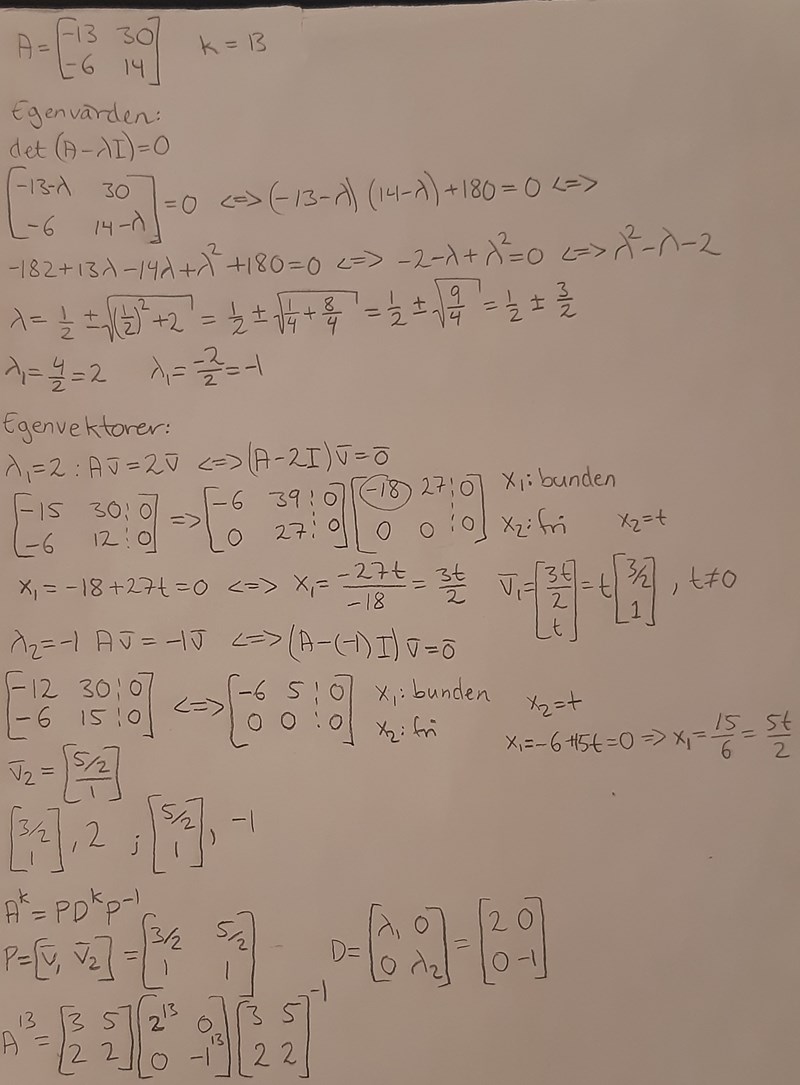 A = [-13 30; -6 14] k = 13
Egenvärden:
det (A-λI)=0
[-13-λ 30; -6 14-λ] = 0 <=> (-13-λ) (14-λ) + 180 = 0 <=>
-182+13λ-14λ+λ² +180=0 <=> -2-λ+λ²=0 <=> λ²-λ-2
λ = 1/2 ± √((1/2)²+2) = 1/2 ± √(1/4 + 8/4) = 1/2 ± √(9/4) = 1/2 ± 3/2
λ₁ = 4/2 = 2 λ₁ = -2/2 = -1
Egenvektorer:
λ₁=2 : Av̄=2v̄ <=> (A-2I)v̄=0̄
[-15 30 ¦ 0; -6 12 ¦ 0] => [-6 39 ¦ 0; 0 27 ¦ 0] [-18 27 ¦ 0; 0 0 ¦ 0] x₁: bunden x₂: fri x₂=t
x₁ = -18+27t=0 <=> x₁ = -27t/-18 = 3t/2 v̄₁ = [3t/2; t] = t[3/2; 1], t≠0
λ₂=-1 Av̄ = -1v̄ <=> (A-(-1)I)v̄=0̄
[-12 30 ¦ 0; -6 15 ¦ 0] <=> [-6 5 ¦ 0; 0 0 ¦ 0] x₁: bunden x₂: fri x₂=t
x₁=-6+15t=0 => x₁ = 15/6 = 5t/2
v̄₂ = [5/2; 1]
[3/2; 1], 2 ; [5/2; 1], -1
Aᵏ = PDᵏP⁻¹
P = [v̄, v̄₂] = [3/2 5/2; 1 1] D = [λ₁ 0; 0 λ₂] = [2 0; 0 -1]
A¹³ = [3 5; 2 2] [2¹³ 0; 0 -1¹³] [3 5; 2 2]⁻¹